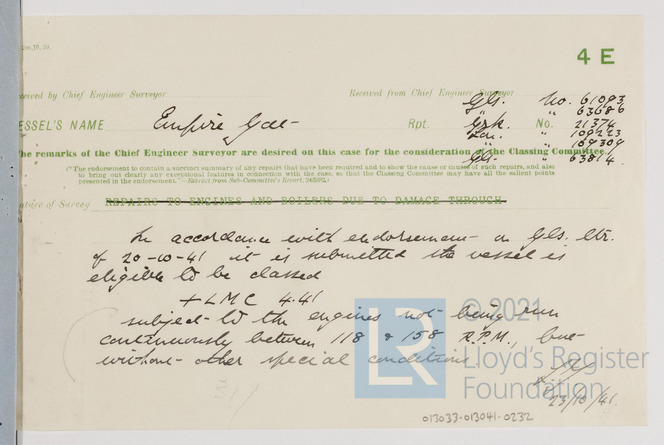 4 E
ceived by Chief Engineer Surveyor Received from Chief Engineer Surveyor
Gls. No. 61093
" 63686
ESSEL'S NAME Empire Gale Rpt. Grk. No. 21374
Lon. " 109223
he remarks of the Chief Engineer Surveyor are desired on this case for the consideration of the Classing Committee.
" 109309
Gls. " 63814.
("The endorsement to contain a succinct summary of any repairs that have been required and to show the cause or causes of such repairs, and also
to bring out clearly any exceptional features in connection with the case, so that the Classing Committee may have all the salient points
presented in the endorsement."—Extract from Sub-Committee's Report,
ature of Survey REPAIRS TO ENGINES AND BOILERS DUE TO DAMAGE THROUGH
In accordance with endorsement on Gls. ltr.
of 20-10-41 it is submitted the vessel is
eligible to be classed
+ LMC 4.41
subject to the engines not being run
continuously between 118 & 158 R.P.M., but
without other special conditions
23/10/41.
013033-013041-0232
LR
© 2021
Lloyd's Register
Foundation